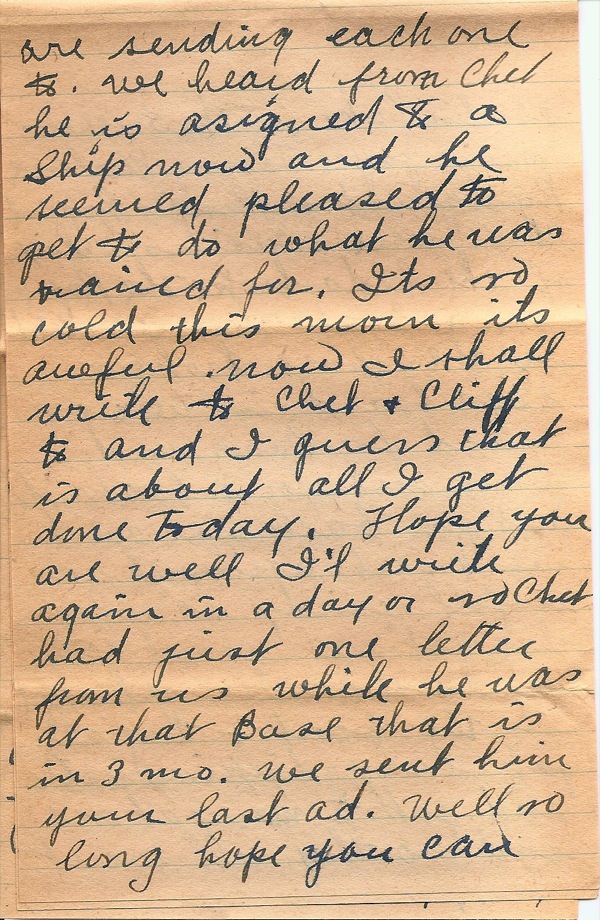 are sending each one
to. we heard from Chet
he is asigned to a
Ship now and he
seemed pleased to
get to do what he was
trained for. Its so
cold this morn its
aweful. now I shall
write to Chet + Cliff
to and I guess that
is about all I get
done Today. Hope you
are well I'l write
again in a day or so Chet
had just one letter
from us while he was
at that Base that is
in 3 mo. we sent him
your last ad. Well so
long hope you can